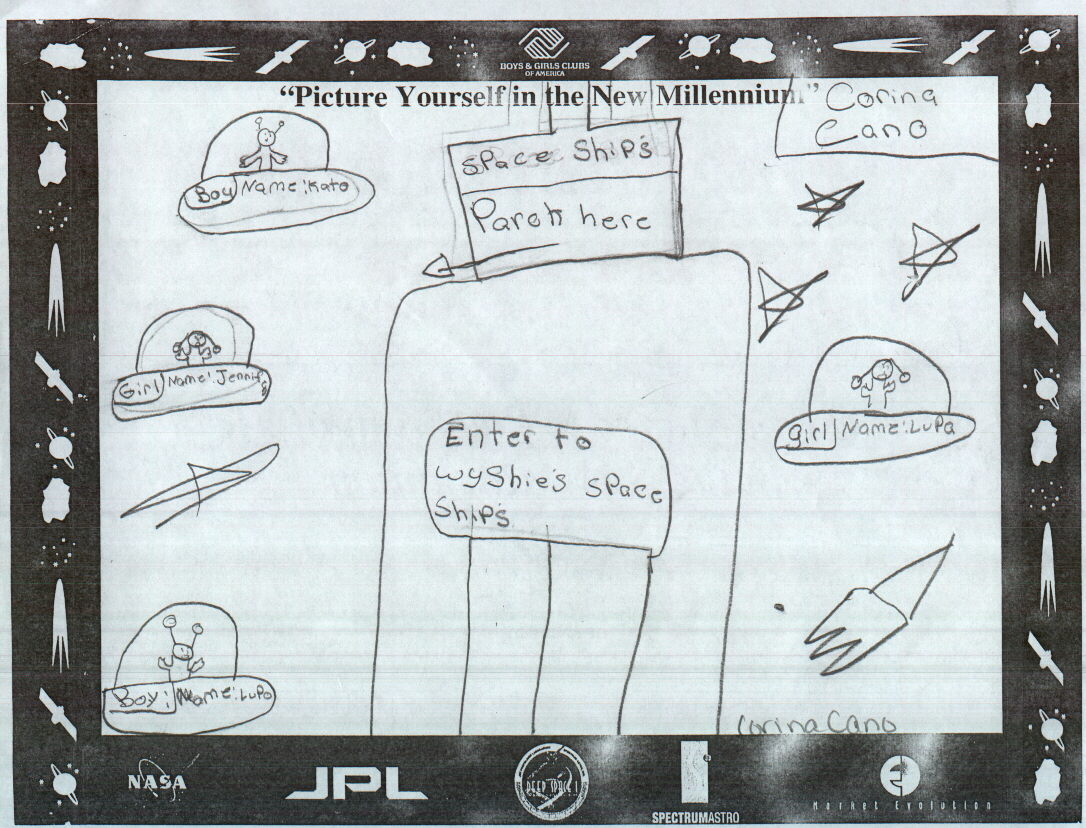 BOYS & GIRLS CLUBS
OF AMERICA
“Picture Yourself in the New Millennium”
Corina
Cano
Space Ship's
Parck here
Boy Name: Kato
Girl Name: Jennif
Girl Name: LuPa
Enter to
wyShie's space
Ship's
Boy: Name: LuPo
Corina Cano
NASA
JPL
DEEP SPACE 1
SPECTRUMASTRO
Market Evolution